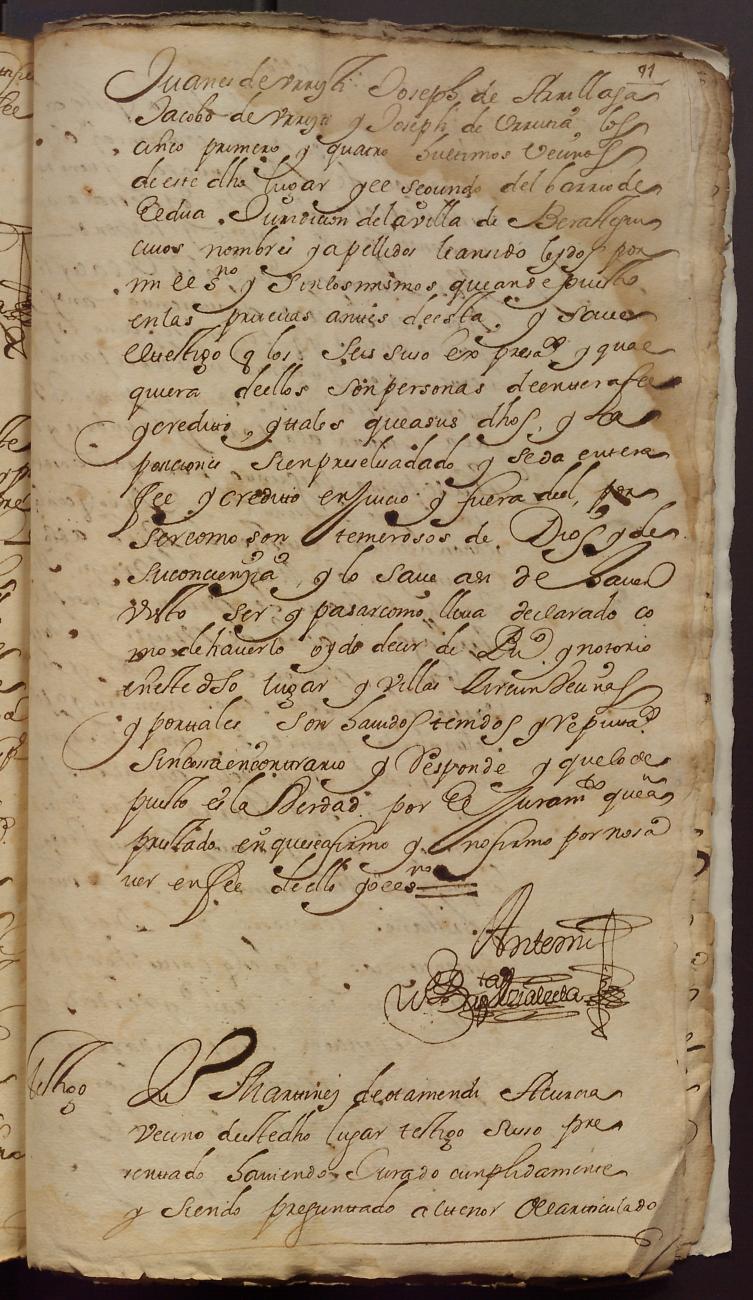 91
Juanes de Urruti Joseph de Arrillaga
Jacobo de Urruti y Joseph de Urrutia los
cinco primero y quatro hultimos Vecinos
de este dho lugar y ee segundo del barrio de
Eldua Juridicion de la villa de Berastegui
cuios nombres y apellidos leansido leydos por
mi ee sno y Sinlosmismos queande puesto
enlas primeras antes deesta, y Save
eltestigo q los Seis suso Expresads y qual
quiera dellos Sonpersonas deenterafee
ycredito, ytales queasus dhos, y
posiciones Sienpreseleadado y seda entera
fee y credito enJuicio y fuera del, por
Sercomo son temerosos de Dios y de
Suconcienzia, y lo save asi de haver
Visto ser y pasarcomo lleva declarado co
mo dehaverlo oydo decir de Puco ynotorio
eneste dho lugar y Villas Circunvecinas
y portales Son havidos tenidos y Reputads
Sincosaencontrario y Responde y quelode
puesto es la Berdad por El Juramto quea
prestado enqueseafirmo y nofirmo por nosa
ver en fee dello yo ees no
Antemi
testigo
Martines deotamendi Aicurcia
Vecino destedho lugar testigo Suso pre
sentado haviendo Jurado cunplidamente
y Siendo preguntado altenor delarticulado